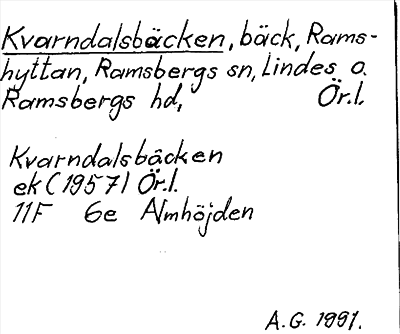 Kvarndalsbäcken, bäck, Rams-
hyttan, Ramsbergs sn, Lindes o.
Ramsbergs hd, Ör.l.
Kvarndalsbäcken
ek (1957) Ör.l.
11F 6e Almhöjden
A.G. 1991.